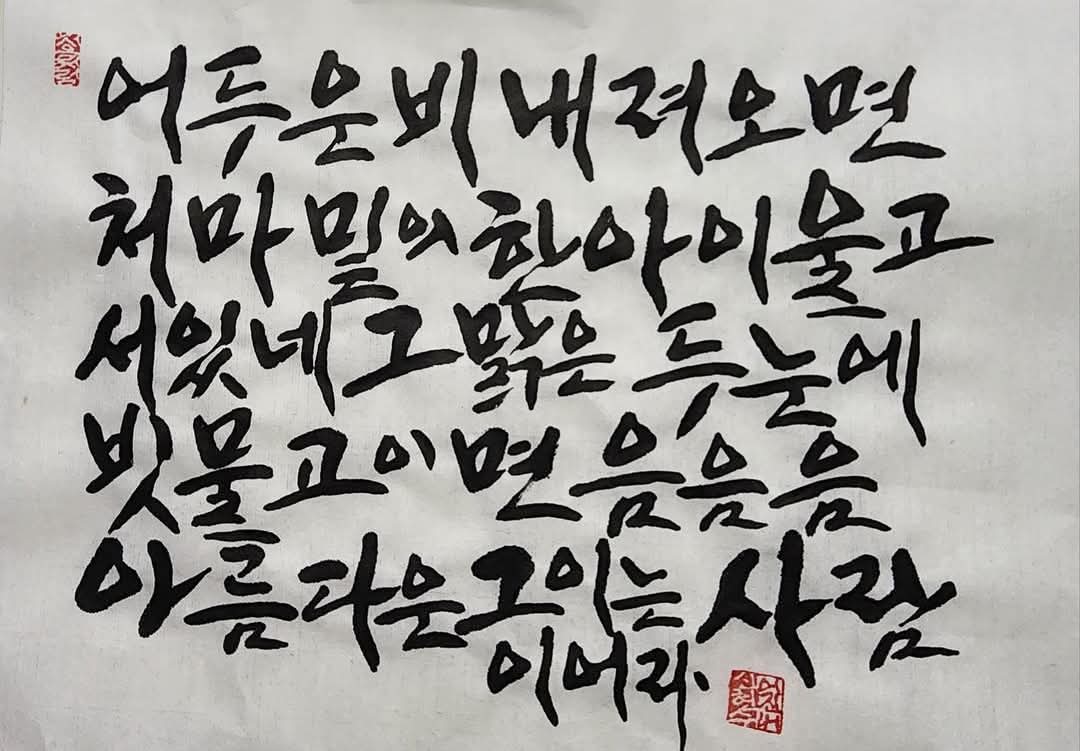 어두운 비 내려오면
처마 밑의 한 아이 울고
서 있네 그 맑은 두 눈에
빗물 고이면 음 음 음
아름다운 그 이는 사람
이어라.